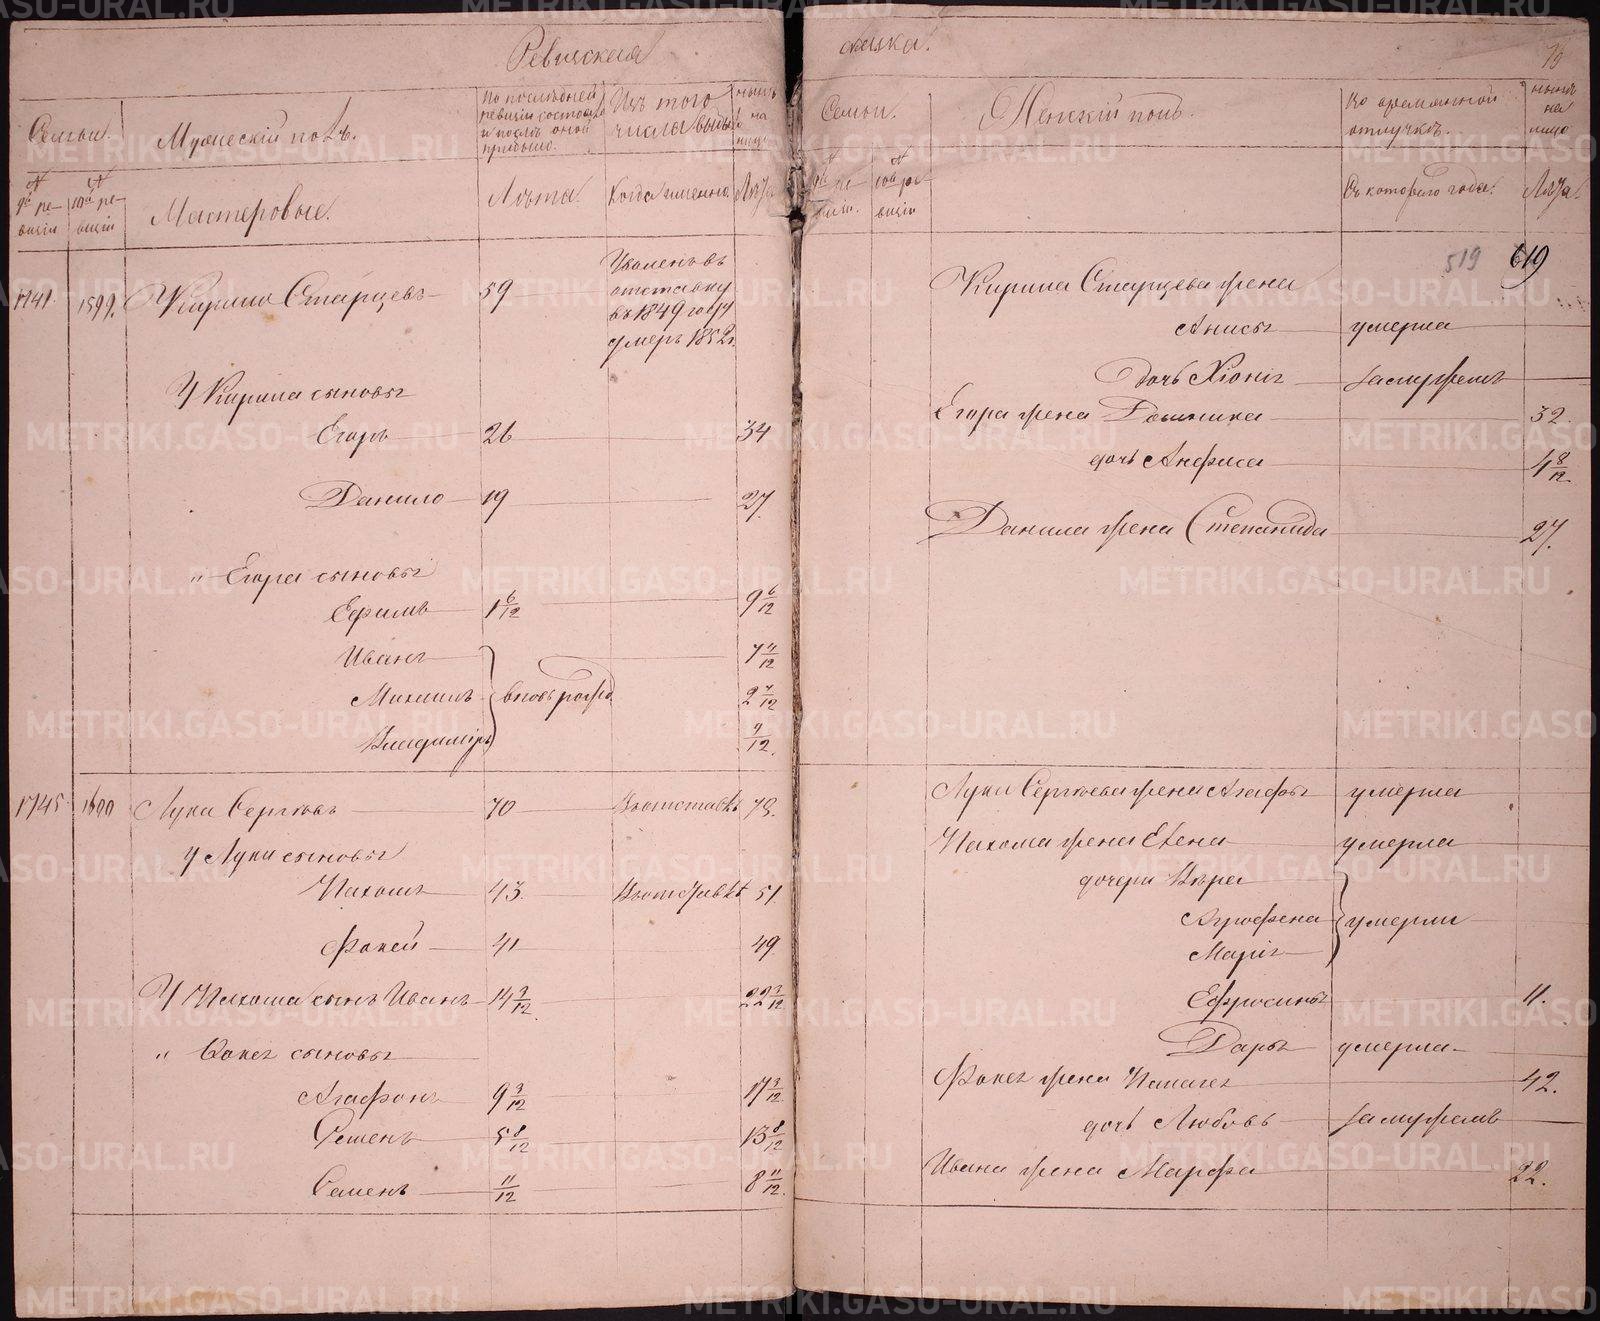 Ревизская
Семьи.
Мужескій полъ.
По послѣдней
ревизіи состояло
и послѣ оной
прибыло.
Изъ того
числа выбыло
нынѣ
на
лицо
№
9й ре-
визіи
№
10й ре-
визіи
Мастеровые.
Лѣта.
Когда именно.
Лѣта
1741. 1599. Кирило Старцевъ 59
Уволенъ въ
отставку
въ 1849 году
умеръ 1852 г.
У Кирила сыновья
Егоръ 26 34
Данило 19 27.
" Егора сыновья
Ефимъ 1 6/12 9 6/12
Иванъ 7 11/12
Михаилъ вновь рожд. 2 7/12
Владиміръ 11/12.
1745 1600 Лука Сергѣевъ 70 Въ отставкѣ 78.
У Луки сыновья
Пахомъ 43. Въ отставкѣ 51
Фокей 41 49
У Пахома сынъ Иванъ 14 3/12. 22 3/12
" Фокея сыновья
Агафонъ 9 3/12 17 3/12
Семенъ 5 8/12 13 8/12
Семенъ 11/12 8 11/12.
сказка.
Семьи.
Женскій полъ.
Во временной
отлучкѣ.
нынѣ
на
лицо
№
9й ре-
визіи.
№
10й ре-
визіи
Съ котораго года.
Лѣта.
519 619
Кирила Старцева жена
Анисья умерла
дочь Хіонія замужемъ
Егора жена Домника 32.
дочь Анфиса 4 8/12.
Данила жена Степанида 27.
Луки Сергѣева жена Агафья умерла
Пахома жена Елена умерла
дочери Вѣра
Агрофена умерли
Марія
Ефросинья 11.
Дарья умерла
Фокея жена Пелагея 42.
дочь Любовь замужемъ
Ивана жена Марфа 22.
METRIKI.GASO-URAL.RU